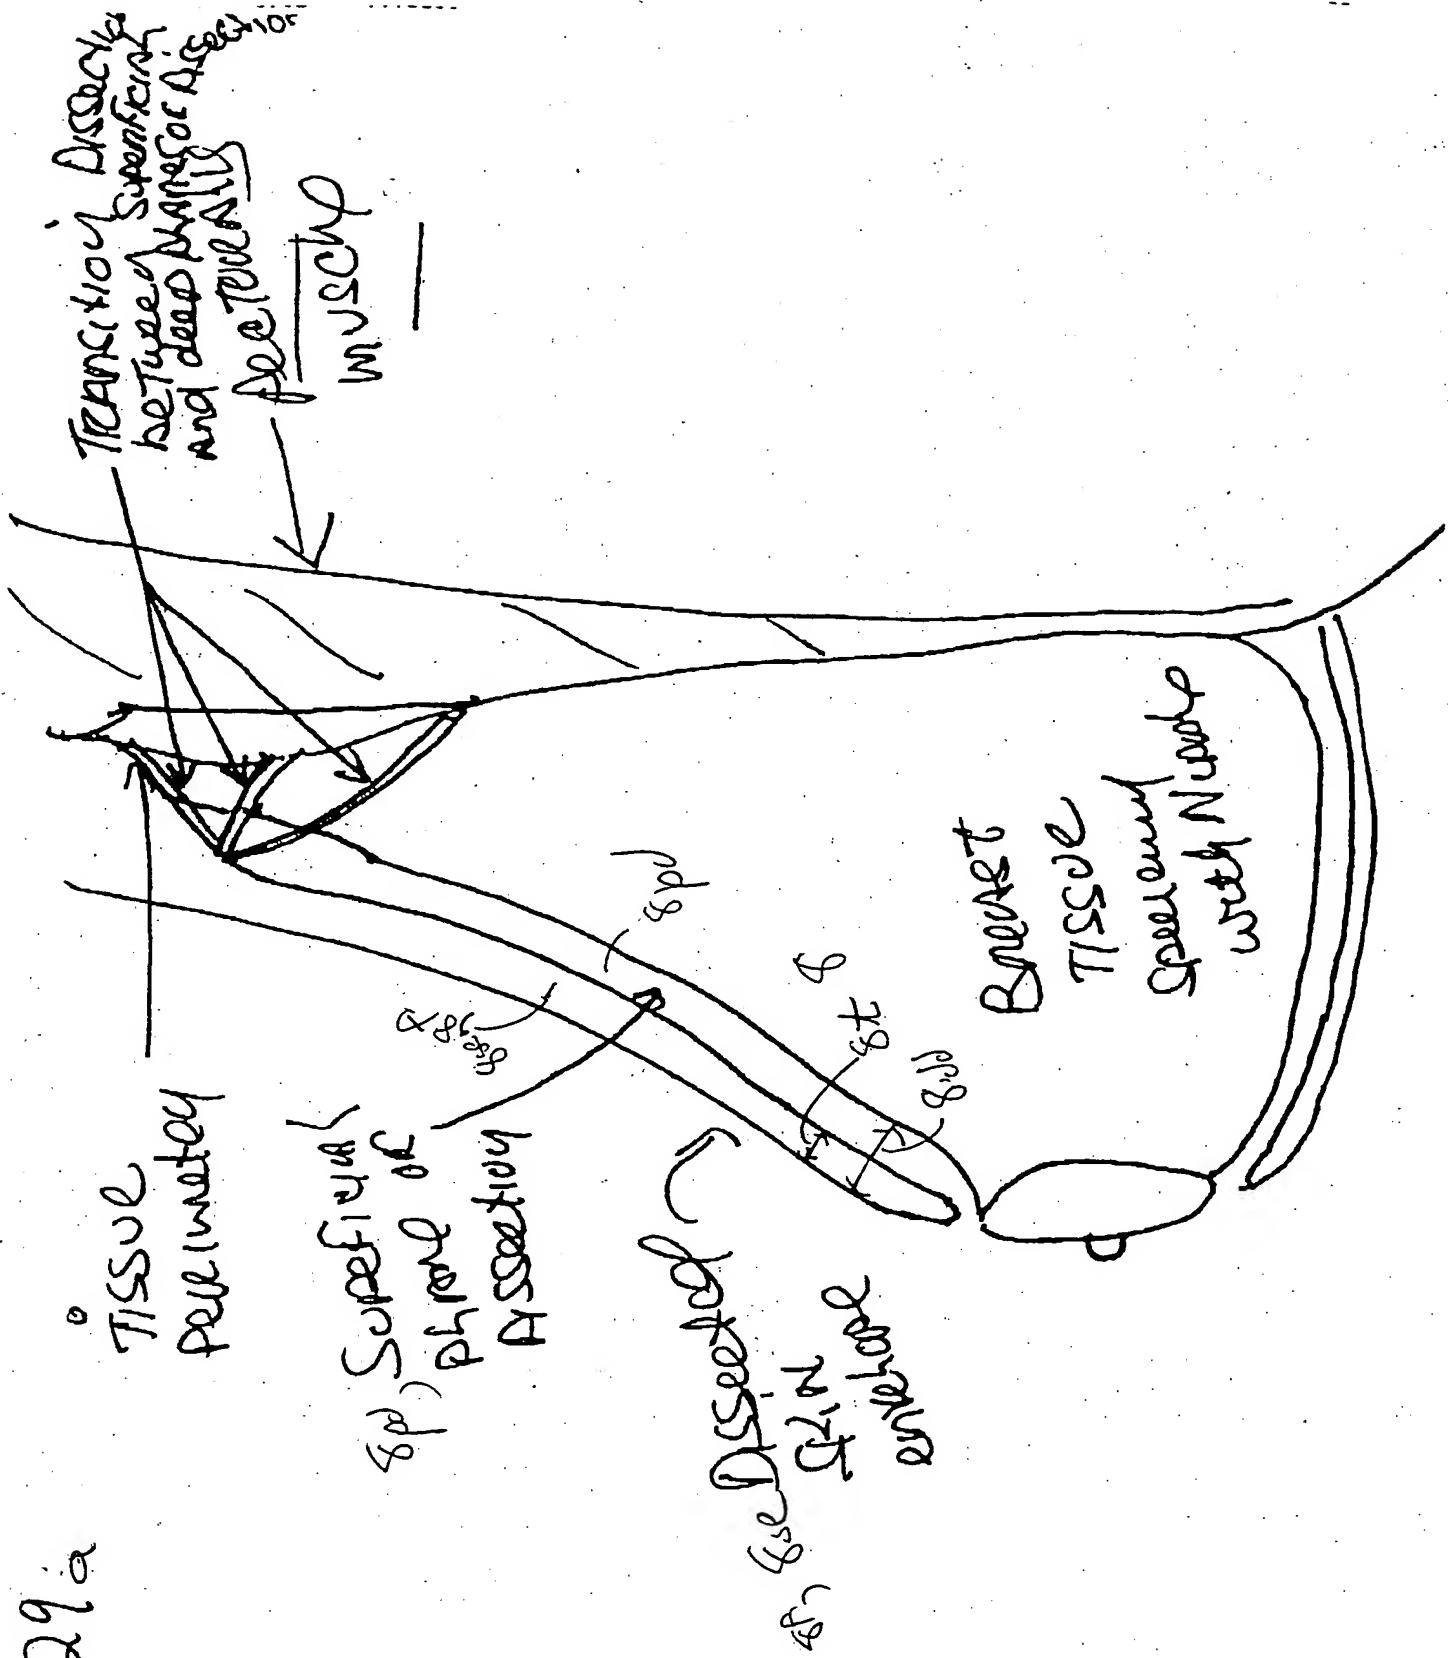 29a
TISSUE
Perimeter
8pd, Superficial
Plane of
Dissection
8f, 8se Dissected
Skin
envelope
Transition Dissection
between Superficial
and deep planes of dissection
Pectoralis
muscle
8pd
8se, 8f
8t
8
8idd
Breast
TISSUE
Specimen
with Nipple